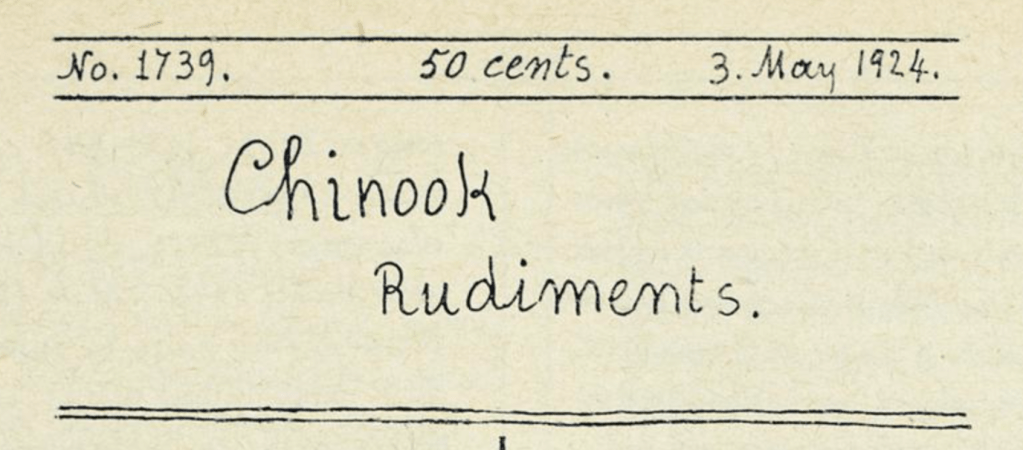 No. 1739. 50 cents. 3. May 1924.
Chinook
Rudiments.